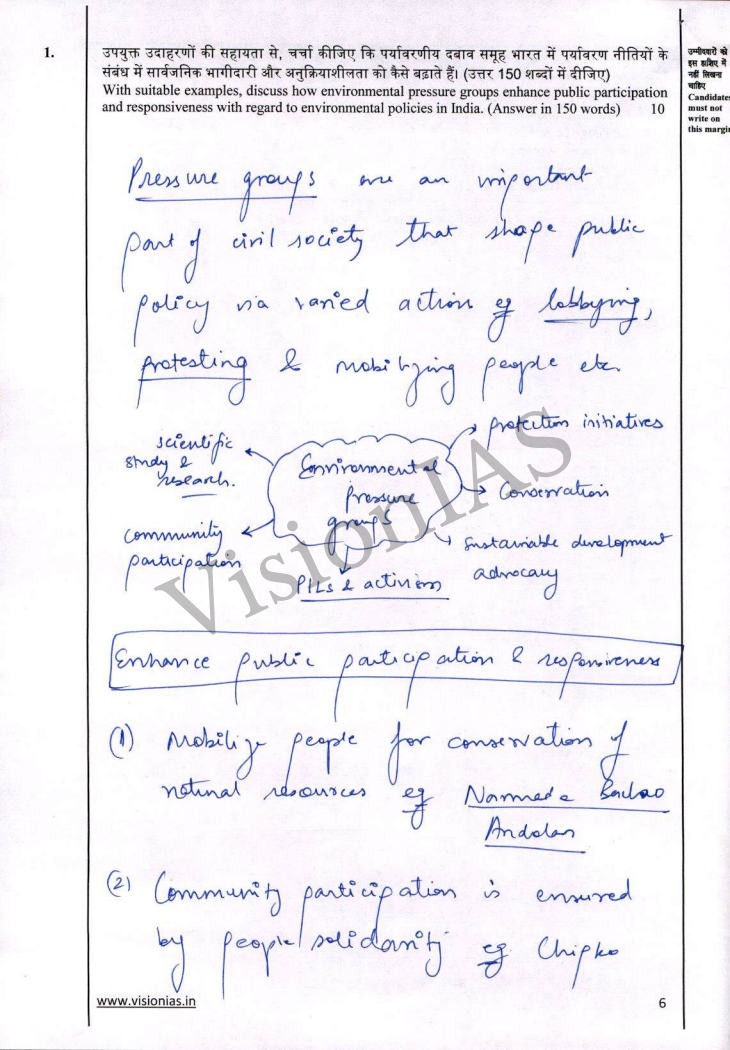 1.
उपयुक्त उदाहरणों की सहायता से, चर्चा कीजिए कि पर्यावरणीय दबाव समूह भारत में पर्यावरण नीतियों के
संबंध में सार्वजनिक भागीदारी और अनुक्रियाशीलता को कैसे बढ़ाते हैं। (उत्तर 150 शब्दों में दीजिए)
With suitable examples, discuss how environmental pressure groups enhance public participation
and responsiveness with regard to environmental policies in India. (Answer in 150 words) 10
उम्मीदवारों को
इस हाशिए में
नहीं लिखना
चाहिए
Candidates
must not
write on
this margin
Pressure groups are an important
part of civil society that shape public
policy via varied action eg lobbying,
protesting & mobilizing people etc.
scientific
study &
research.
community
participation
Environmental
pressure
groups
PILs & activism
protection initiatives
Conservation
Sustainable development
advocacy
VisionIAS
Enhance public participation & responsiveness
(1) Mobilize people for conservation of
natural resources eg Narmada Bachao
Andolan
(2) Community participation is ensured
by people solidarity eg Chipko
www.visionias.in
6